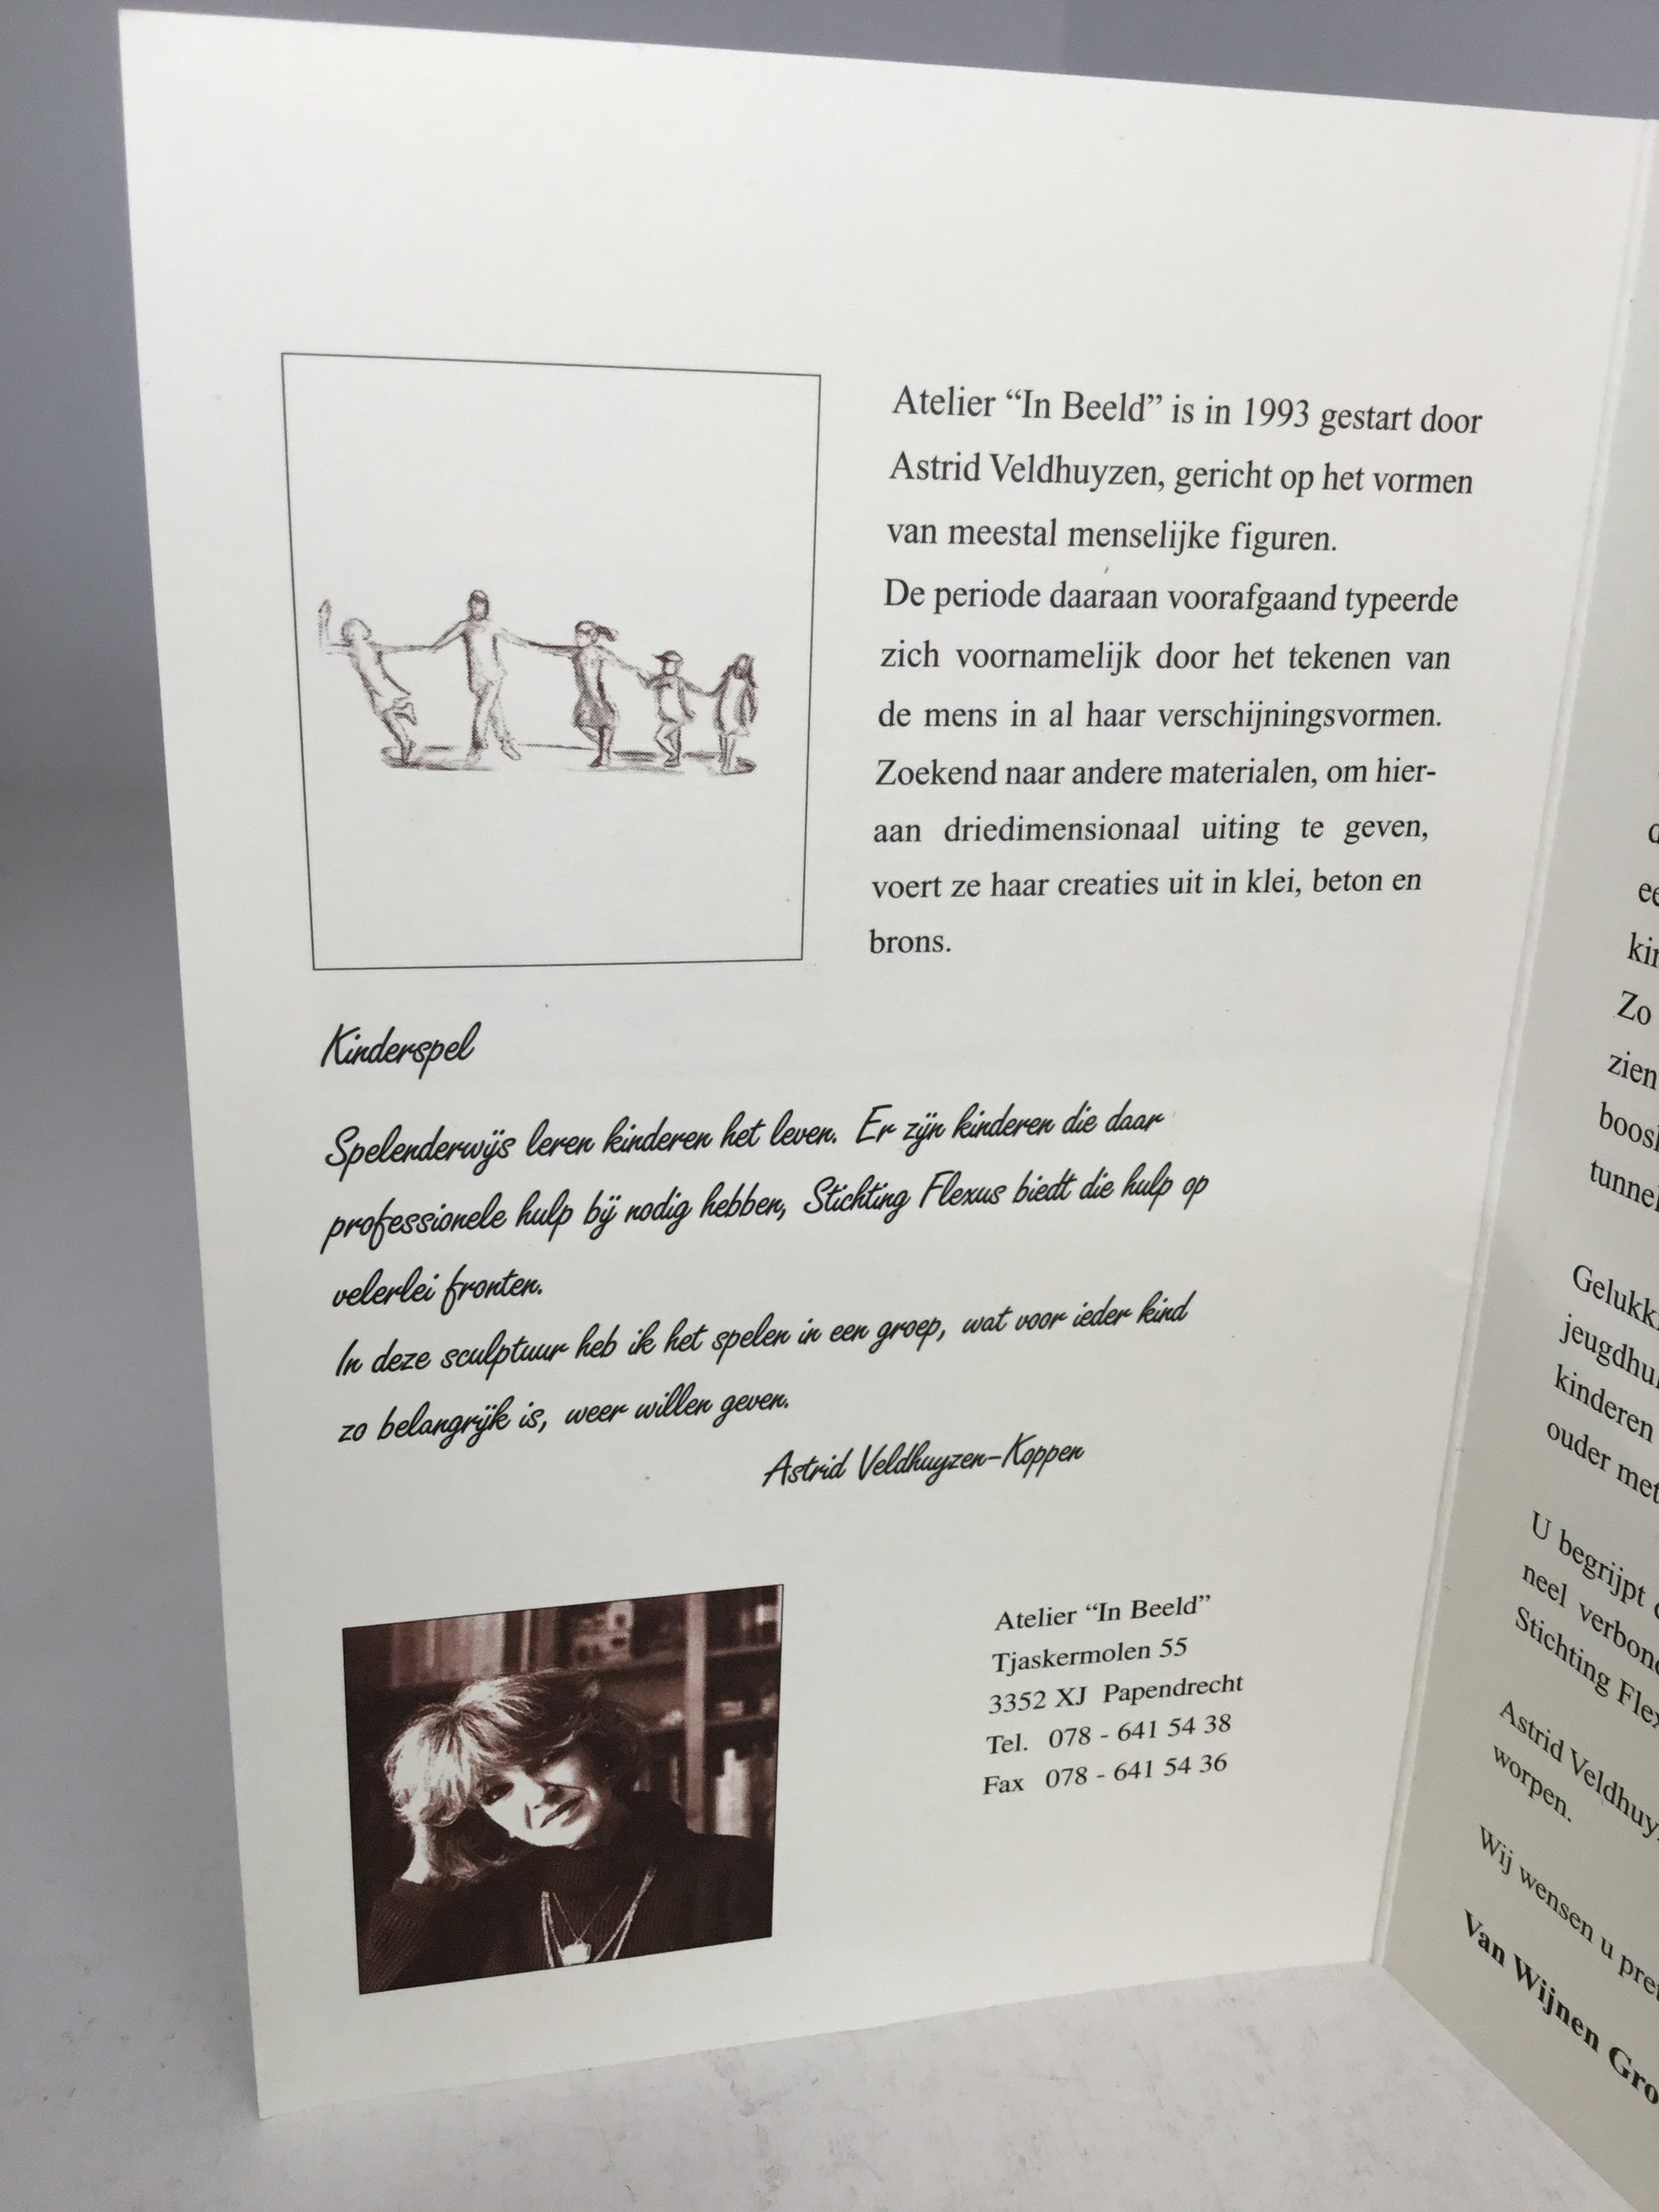 Atelier “In Beeld” is in 1993 gestart door
Astrid Veldhuyzen, gericht op het vormen
van meestal menselijke figuren.
De periode daaraan voorafgaand typeerde
zich voornamelijk door het tekenen van
de mens in al haar verschijningsvormen.
Zoekend naar andere materialen, om hier-
aan driedimensionaal uiting te geven,
voert ze haar creaties uit in klei, beton en
brons.
Kinderspel
Spelenderwijs leren kinderen het leven. Er zijn kinderen die daar
professionele hulp bij nodig hebben, Stichting Flexus biedt die hulp op
velerlei fronten.
In deze sculptuur heb ik het spelen in een groep, wat voor ieder kind
zo belangrijk is, weer willen geven.
Astrid Veldhuyzen-Koppen
Atelier “In Beeld”
Tjaskermolen 55
3352 XJ Papendrecht
Tel. 078 - 641 54 38
Fax 078 - 641 54 36
Zo
zien
ouder met
U begrijpt
neel
Stichting
Astrid
worpen.
Wij wensen u
Van Wijnen